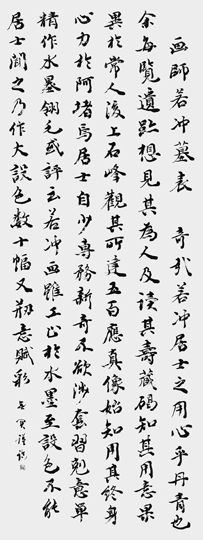 画師若冲墓表 奇哉若冲居士之用心乎丹青也
余每覧遺跡想見其為人及讀其壽藏碣知其用意果
異於常人後上石峰觀其所建五百應真像始知用其終身
心力於阿堵焉居士自少專務新奇不欲涉套習剋意單
精作水墨翎毛或評云若冲画雖工止於水墨至設色不能
居士聞之乃作大設色數十幅又勠意賦彩